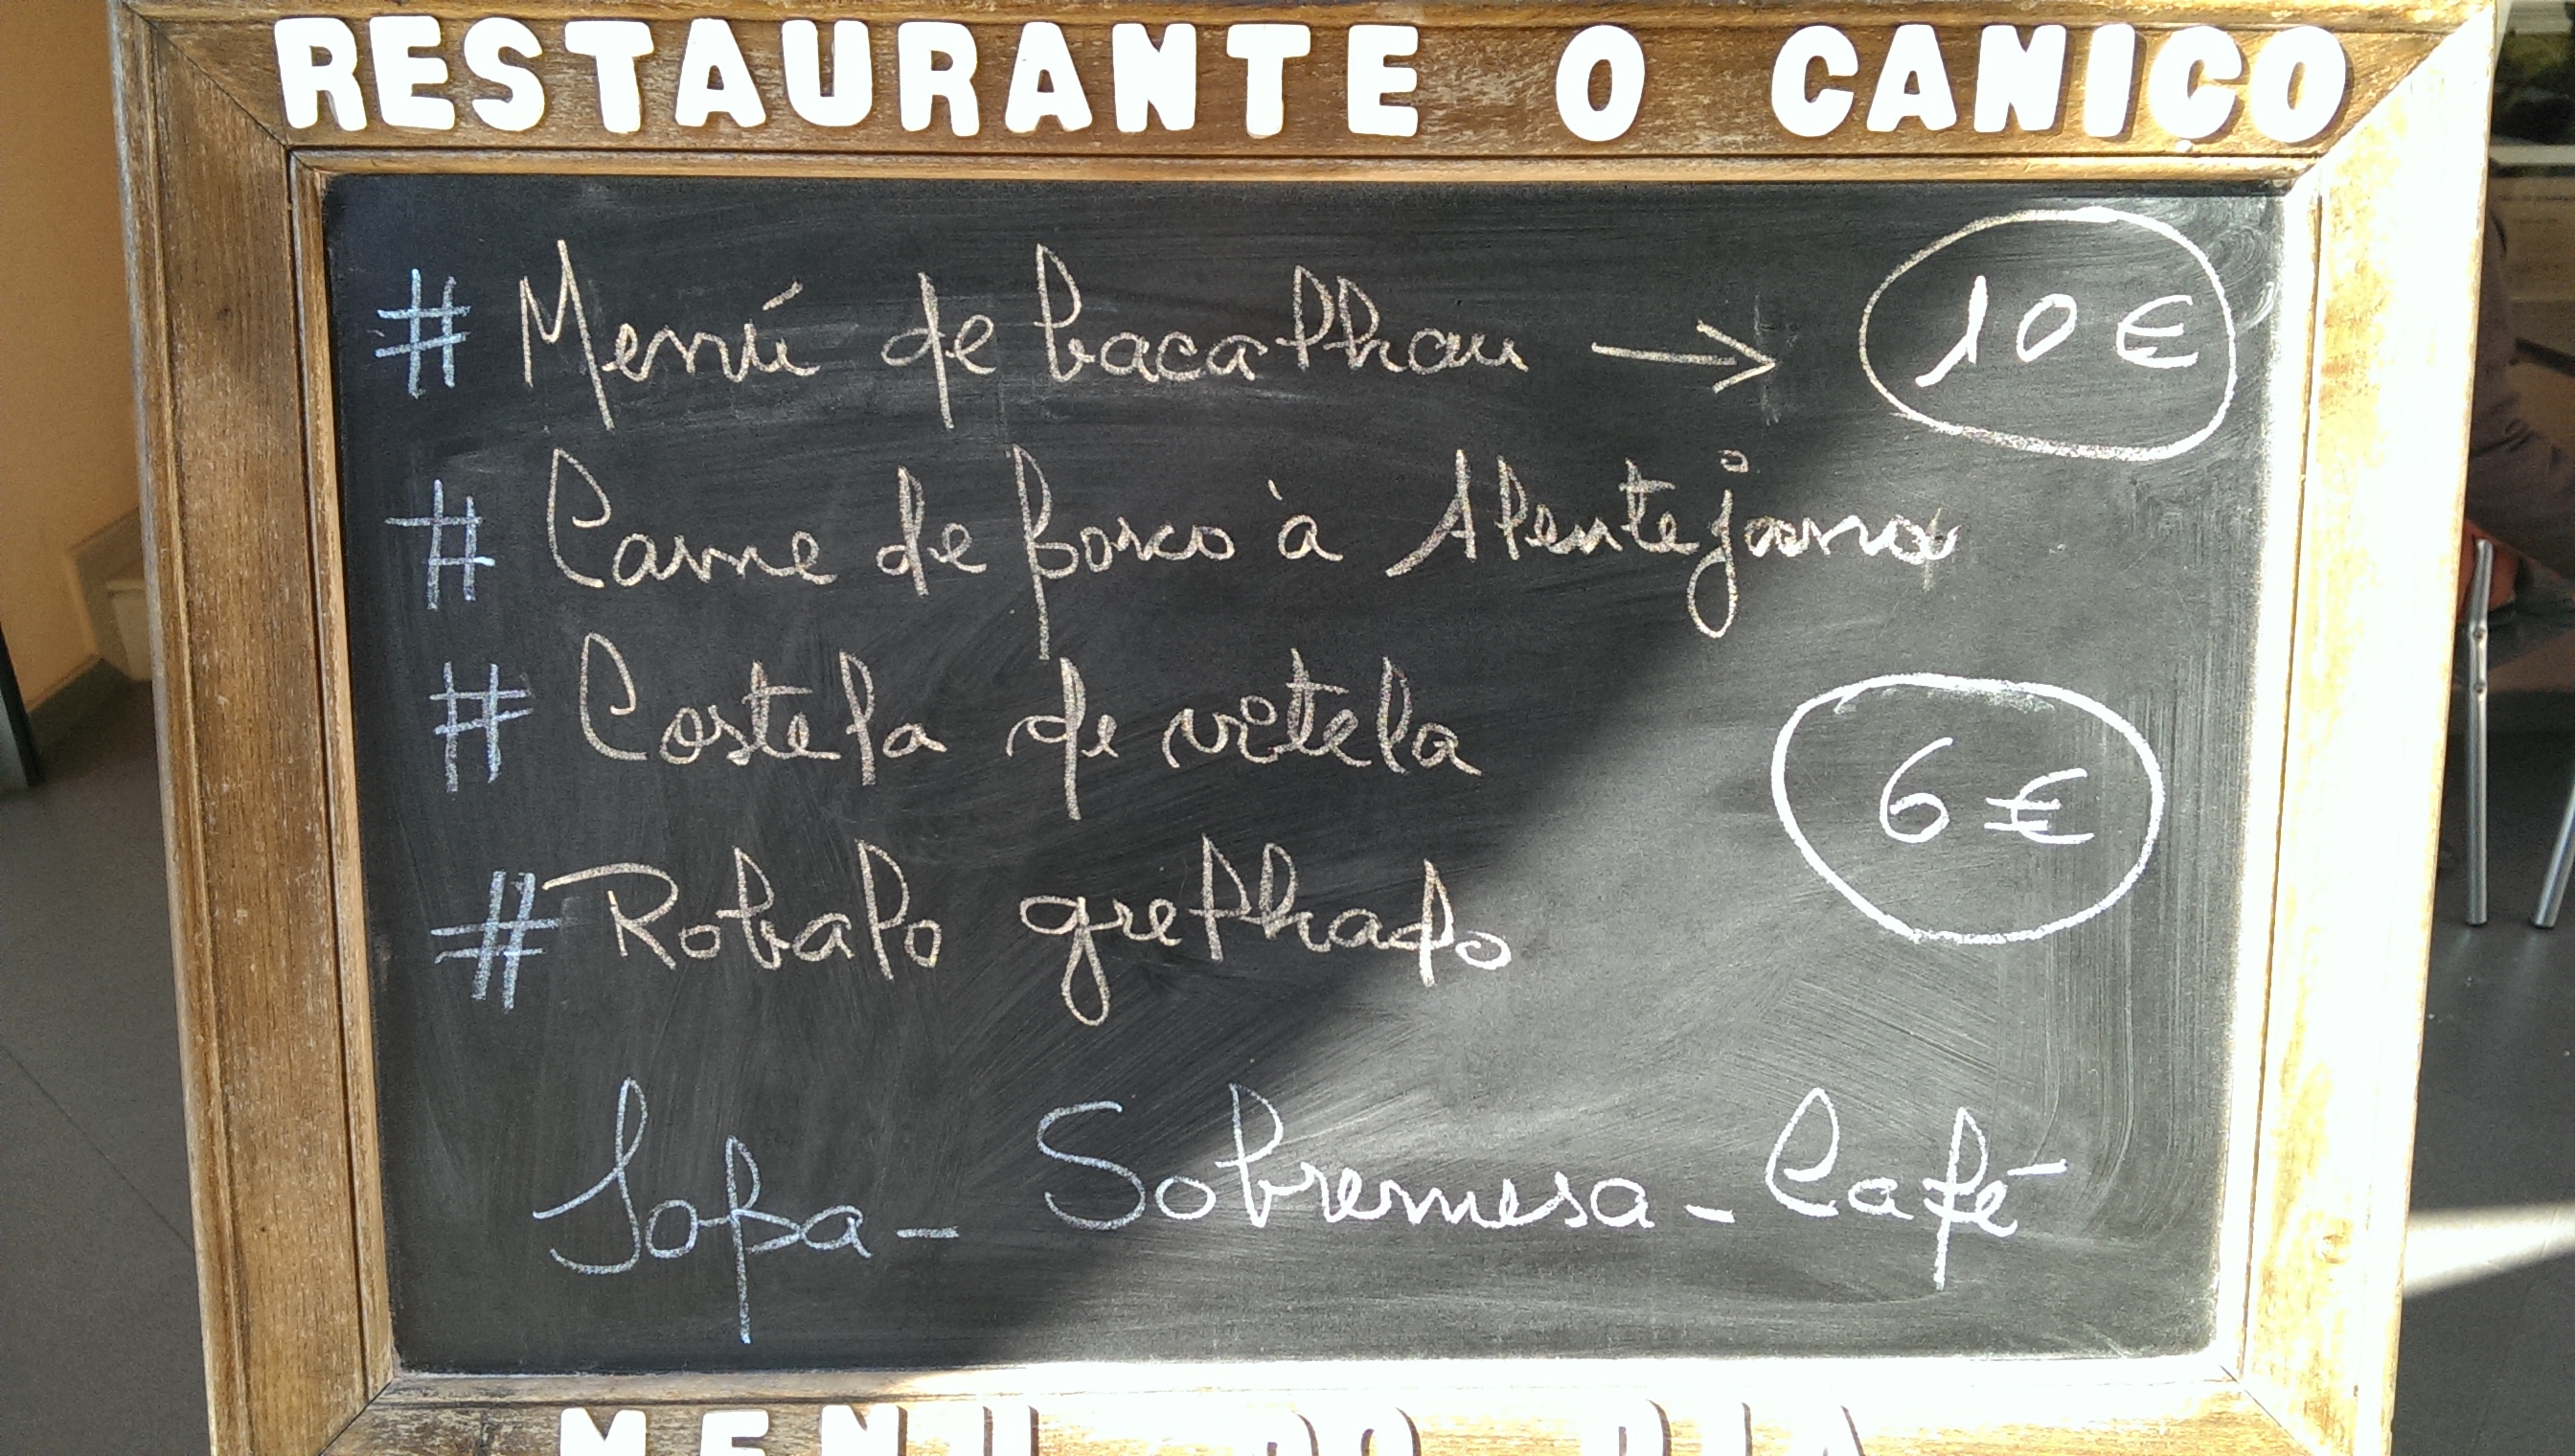 RESTAURANTE O CANIÇO
# Menú de bacalhau → 10 €
# Carne de porco à Alentejana
# Costela de vitela
6 €
# Robalo grelhado
Sopa - Sobremesa - Café
MENU DO DIA